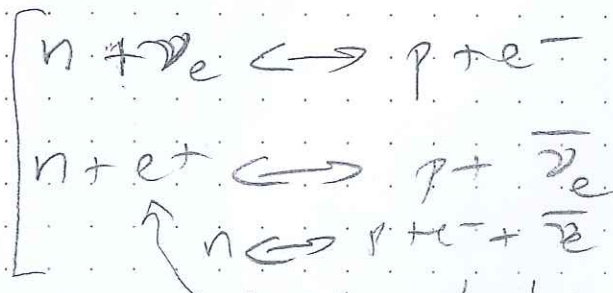 n + νe ↔ p + e⁻
n + e⁺ ↔ p + ν̄e
n ↔ p + e⁻ + ν̄e